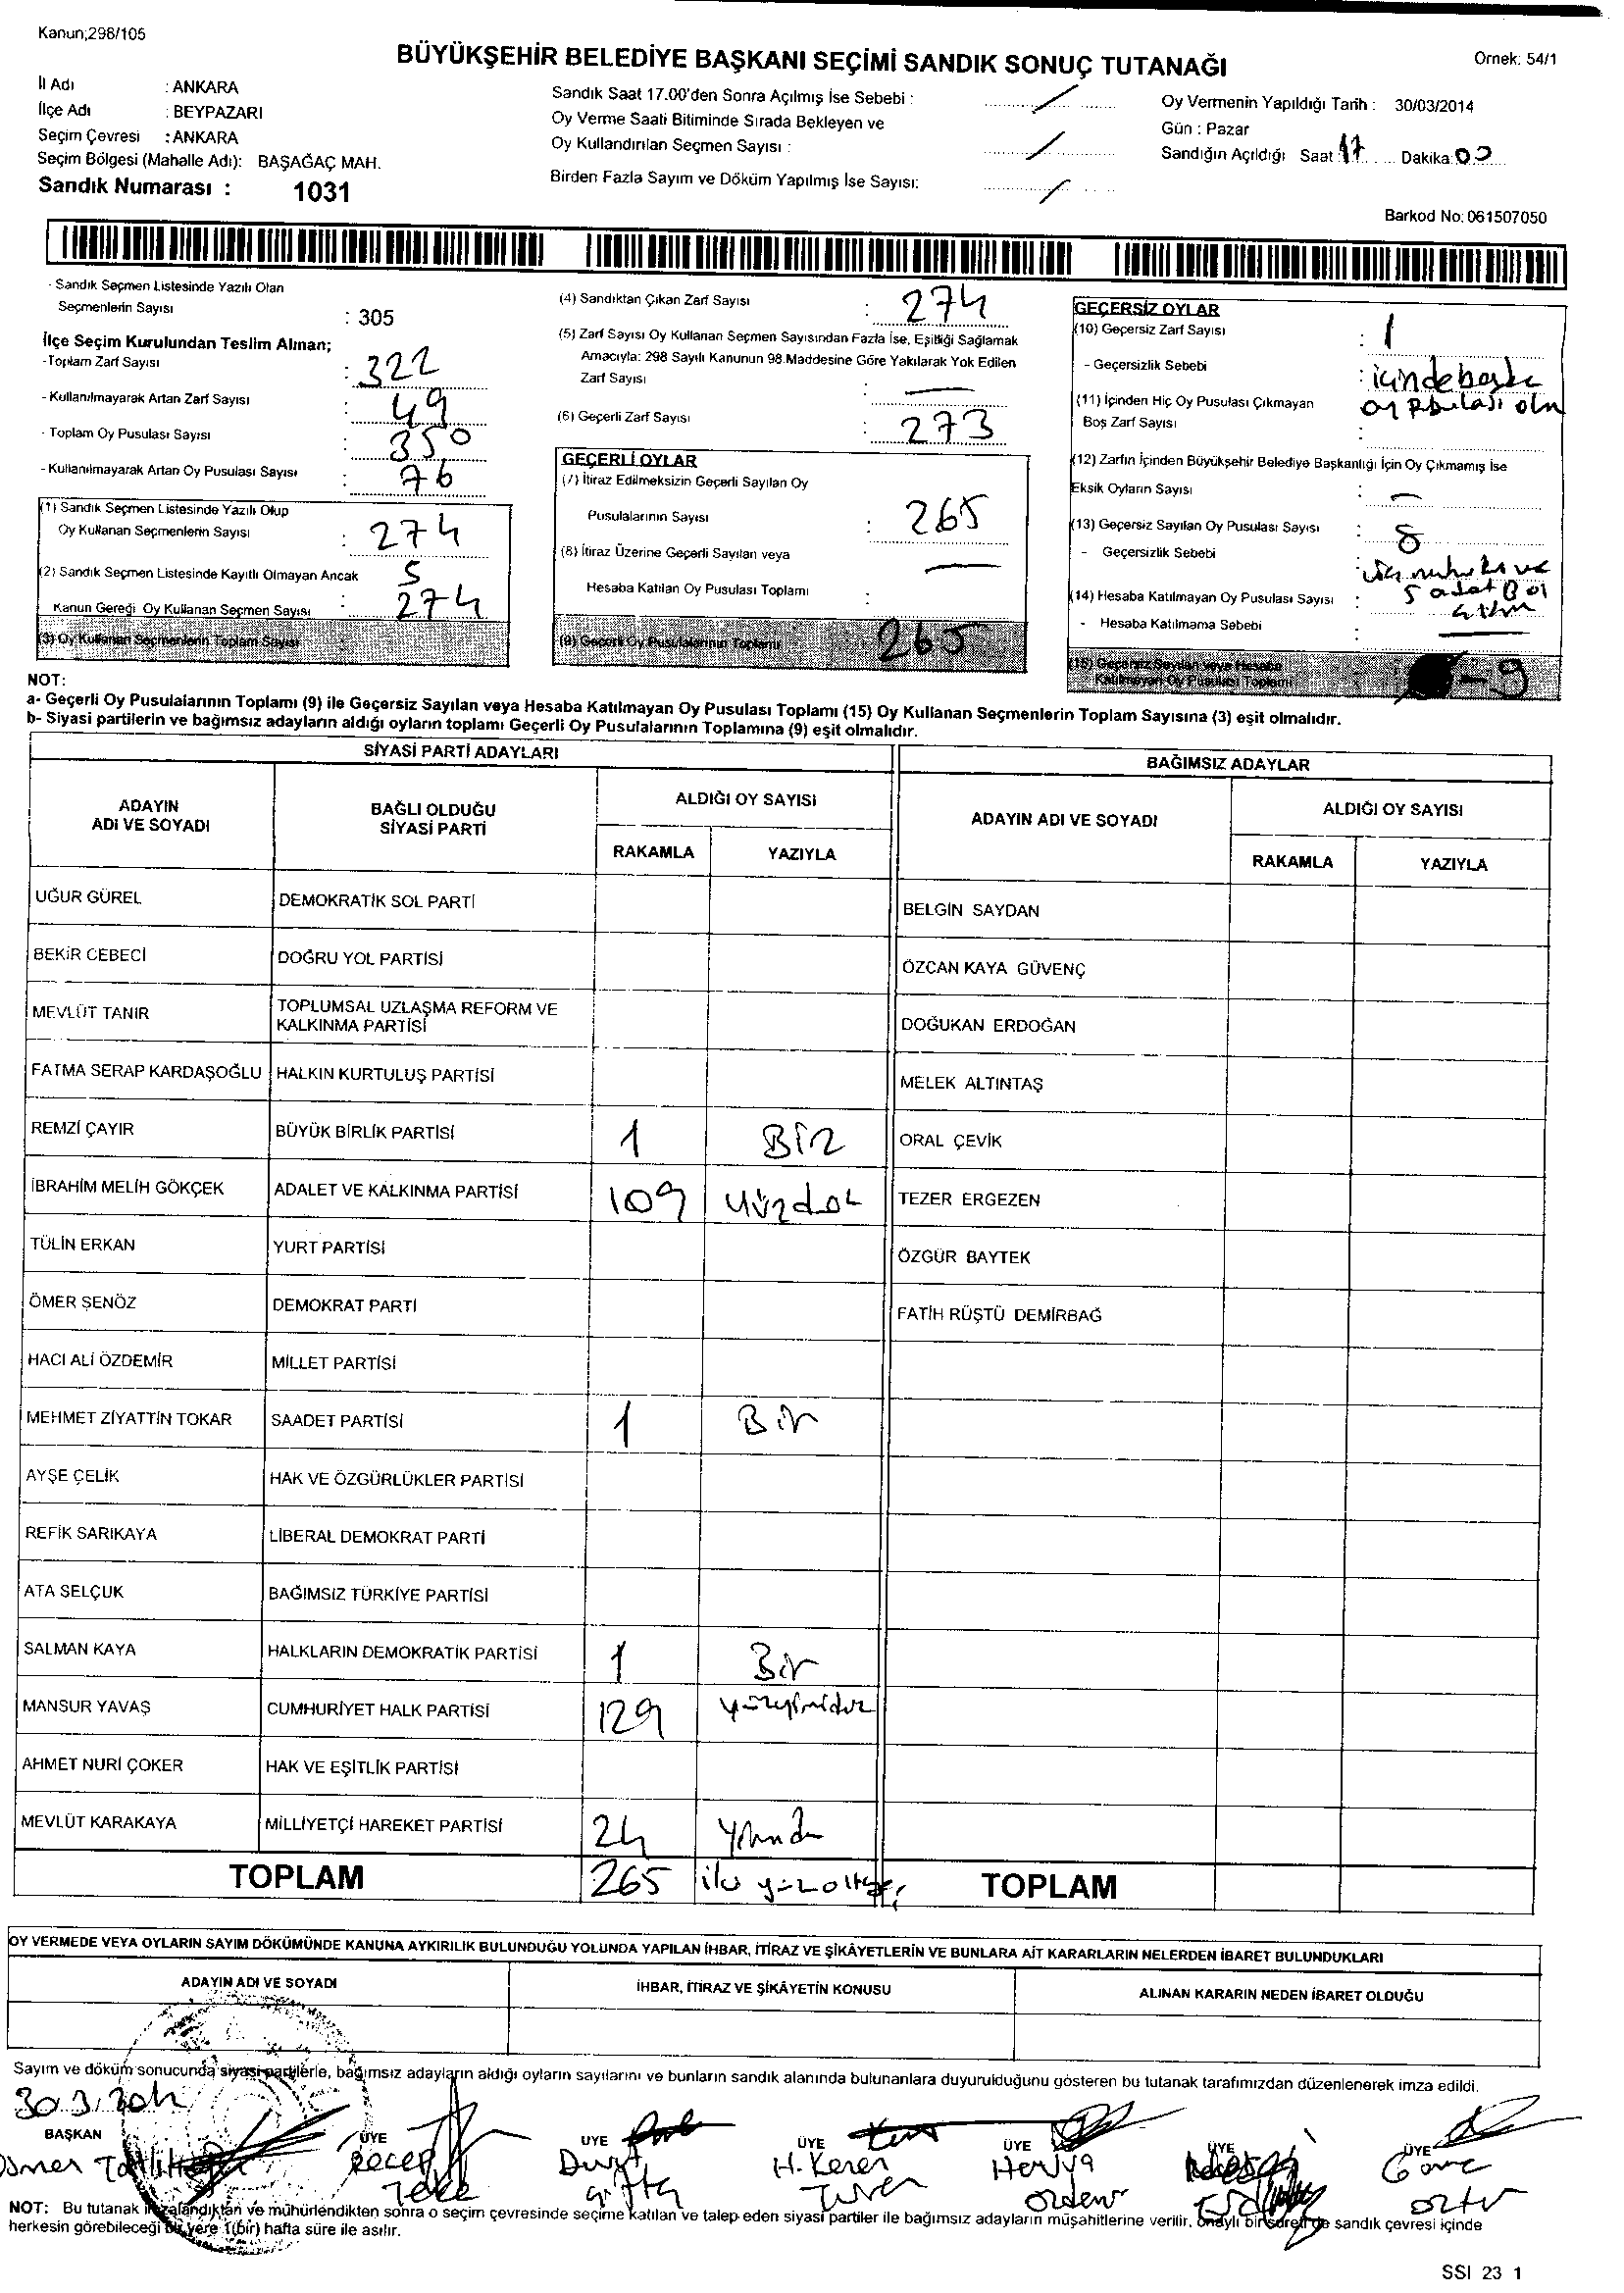 Kanun;298/105
BÜYÜKŞEHİR BELEDİYE BAŞKANI SEÇİMİ SANDIK SONUÇ TUTANAĞI
Ornek: 54/1
İl Adı : ANKARA
İlçe Adı : BEYPAZARI
Seçim Çevresi : ANKARA
Seçim Bölgesi (Mahalle Adı): BAŞAĞAÇ MAH.
Sandık Numarası : 1031
Sandık Saat 17.00'den Sonra Açılmış İse Sebebi : /
Oy Verme Saati Bitiminde Sırada Bekleyen ve
Oy Kullandırılan Seçmen Sayısı : /
Birden Fazla Sayım ve Döküm Yapılmış İse Sayısı: /
Oy Vermenin Yapıldığı Tarih : 30/03/2014
Gün : Pazar
Sandığın Açıldığı Saat 17 Dakika: 00
Barkod No: 061507050
- Sandık Seçmen Listesinde Yazılı Olan
Seçmenlerin Sayısı : 305
İlçe Seçim Kurulundan Teslim Alınan;
-Toplam Zarf Sayısı : 322
- Kullanılmayarak Artan Zarf Sayısı : 49
- Toplam Oy Pusulası Sayısı : 350
- Kullanılmayarak Artan Oy Pusulası Sayısı : 76
(1) Sandık Seçmen Listesinde Yazılı Olup
Oy Kullanan Seçmenlerin Sayısı : 274
(2) Sandık Seçmen Listesinde Kayıtlı Olmayan Ancak
Kanun Gereği Oy Kullanan Seçmen Sayısı : 274
(3) Oy Kullanan Seçmenlerin Toplam Sayısı
(4) Sandıktan Çıkan Zarf Sayısı : 274
(5) Zarf Sayısı Oy Kullanan Seçmen Sayısından Fazla İse, Eşitliği Sağlamak
Amacıyla: 298 Sayılı Kanunun 98.Maddesine Göre Yakılarak Yok Edilen
Zarf Sayısı : —
(6) Geçerli Zarf Sayısı : 273
GEÇERLİ OYLAR
(7) İtiraz Edilmeksizin Geçerli Sayılan Oy
Pusulalarının Sayısı : 265
(8) İtiraz Üzerine Geçerli Sayılan veya —
Hesaba Katılan Oy Pusulası Toplamı :
(9) Geçerli Oy Pusulalarının Toplamı 265
GEÇERSİZ OYLAR
(10) Geçersiz Zarf Sayısı : 1
- Geçersizlik Sebebi : içinde başka
(11) İçinden Hiç Oy Pusulası Çıkmayan oy pusulası
Boş Zarf Sayısı :
(12) Zarfın İçinden Büyükşehir Belediye Başkanlığı İçin Oy Çıkmamış İse
Eksik Oyların Sayısı : —
(13) Geçersiz Sayılan Oy Pusulası Sayısı : 8
- Geçersizlik Sebebi :
(14) Hesaba Katılmayan Oy Pusulası Sayısı : 5 adet
- Hesaba Katılmama Sebebi :
(15) Geçersiz Sayılan veya Hesaba
Katılmayan Oy Pusulası Toplamı - 9
NOT:
a- Geçerli Oy Pusulalarının Toplamı (9) ile Geçersiz Sayılan veya Hesaba Katılmayan Oy Pusulası Toplamı (15) Oy Kullanan Seçmenlerin Toplam Sayısına (3) eşit olmalıdır.
b- Siyasi partilerin ve bağımsız adayların aldığı oyların toplamı Geçerli Oy Pusulalarının Toplamına (9) eşit olmalıdır.
SİYASİ PARTİ ADAYLARI
BAĞIMSIZ ADAYLAR
ADAYIN
ADI VE SOYADI
BAĞLI OLDUĞU
SİYASİ PARTİ
ALDIĞI OY SAYISI
RAKAMLA YAZIYLA
ADAYIN ADI VE SOYADI
ALDIĞI OY SAYISI
RAKAMLA YAZIYLA
UĞUR GÜREL DEMOKRATİK SOL PARTİ BELGİN SAYDAN
BEKİR CEBECİ DOĞRU YOL PARTİSİ ÖZCAN KAYA GÜVENÇ
MEVLÜT TANIR TOPLUMSAL UZLAŞMA REFORM VE
KALKINMA PARTİSİ DOĞUKAN ERDOĞAN
FATMA SERAP KARDAŞOĞLU HALKIN KURTULUŞ PARTİSİ MELEK ALTINTAŞ
REMZİ ÇAYIR BÜYÜK BİRLİK PARTİSİ 1 Bir ORAL ÇEVİK
İBRAHİM MELİH GÖKÇEK ADALET VE KALKINMA PARTİSİ 109 TEZER ERGEZEN
TÜLİN ERKAN YURT PARTİSİ ÖZGÜR BAYTEK
ÖMER ŞENÖZ DEMOKRAT PARTİ FATİH RÜŞTÜ DEMİRBAĞ
HACI ALİ ÖZDEMİR MİLLET PARTİSİ
MEHMET ZİYATTİN TOKAR SAADET PARTİSİ 1 Bir
AYŞE ÇELİK HAK VE ÖZGÜRLÜKLER PARTİSİ
REFİK SARIKAYA LİBERAL DEMOKRAT PARTİ
ATA SELÇUK BAĞIMSIZ TÜRKİYE PARTİSİ
SALMAN KAYA HALKLARIN DEMOKRATİK PARTİSİ 1 Bir
MANSUR YAVAŞ CUMHURİYET HALK PARTİSİ 129
AHMET NURİ ÇOKER HAK VE EŞİTLİK PARTİSİ
MEVLÜT KARAKAYA MİLLİYETÇİ HAREKET PARTİSİ 24
TOPLAM 265 TOPLAM
OY VERMEDE VEYA OYLARIN SAYIM DÖKÜMÜNDE KANUNA AYKIRILIK BULUNDUĞU YOLUNDA YAPILAN İHBAR, İTİRAZ VE ŞİKÂYETLERİN VE BUNLARA AİT KARARLARIN NELERDEN İBARET BULUNDUKLARI
ADAYIN ADI VE SOYADI İHBAR, İTİRAZ VE ŞİKÂYETİN KONUSU ALINAN KARARIN NEDEN İBARET OLDUĞU
Sayım ve döküm sonucunda siyasi partilerle, bağımsız adayların aldığı oyların sayılarını ve bunların sandık alanında bulunanlara duyurulduğunu gösteren bu tutanak tarafımızdan düzenlenerek imza edildi.
30.3.2014
BAŞKAN ÜYE ÜYE ÜYE ÜYE ÜYE ÜYE
Recep H. Keren
Teke
NOT: Bu tutanak imzalandıktan ve mühürlendikten sonra o seçim çevresinde seçime katılan ve talep eden siyasi partiler ile bağımsız adayların müşahitlerine verilir, onaylı bir sureti de sandık çevresi içinde
herkesin görebileceği bir yere 1(bir) hafta süre ile asılır.
SSI 23 1